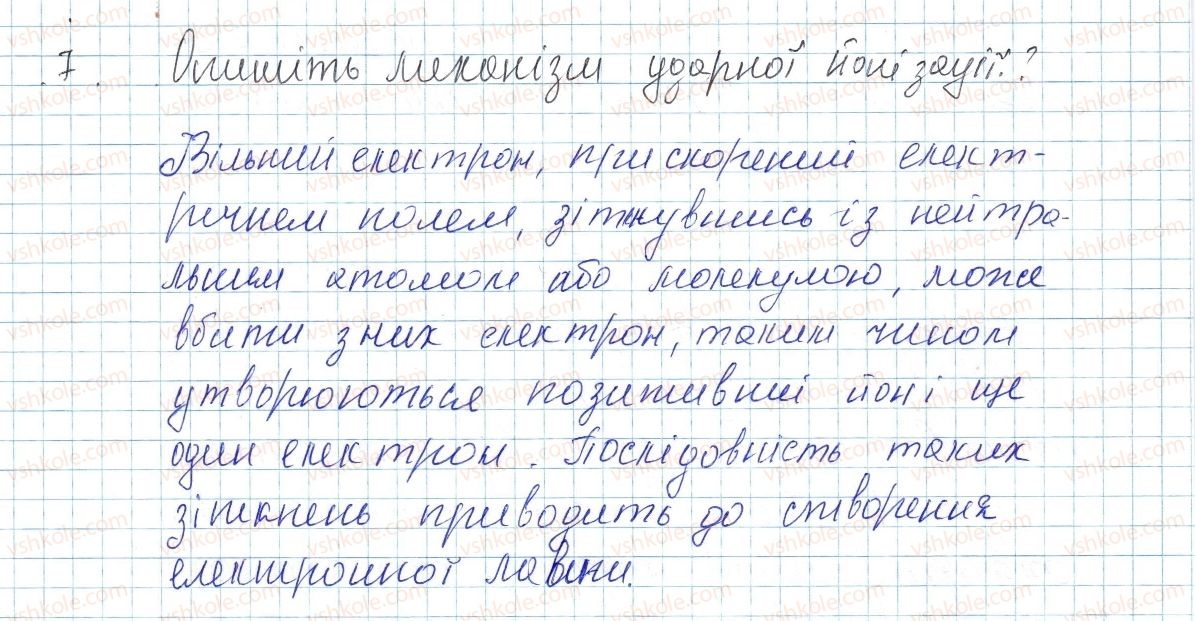 7. Опишіть механізм ударної йонізації?
Вільний електрон, прискорений елект-
ричнем полем, зіткнувшись із нейтра-
льним атомом або молекулою, може
вбити з них електрон, таким чином
утворюються позитивний йон і ще
один електрон. Послідовність таких
зіткнень приводить до створення
електронної лавини.